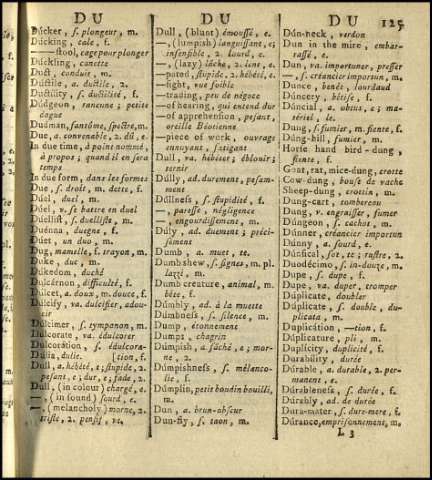 D U
D U
D U
125
Dúcker, ſ. plongeur, m.
Dúcking, cale, f.
——ſtool, cage pour plonger
Dúckling, canette
Duct, conduit, m.
Dúctile, a. ductile, 2.
Ductílity, ſ. ductilité, f.
Dúdgeon, rancune; petite
dague
Dúdman, fantôme, ſpectre, m.
Due, a. convenable, 2. dû, e.
In due time, à point nommé,
à propos; quand il en ſera
temps
In due form, dans les formes
Due, ſ. droit, m. dette, f.
Dúel, duel, m.
Dúel, v. ſe battre en duel
Dúelliſt, ſ. duelliſte, m.
Duénna, duegne, f.
Duét, un duo, m.
Dug, mamelle, f. trayon, m.
Duke, duc, m.
Dúkedom, duché
Dulcérnon, difficulté, f.
Dúlcet, a. doux, m. douce, f.
Dúlcify, va. dulcifier, adou-
cir
Dúlcimer, ſ. tympanon, m.
Dúlcorate, va. édulcorer
Dulcorátion, ſ. édulcora-
Dúlia, dulie. [tion, f.
Dull, a. hébété, e; ſtupide, 2.
peſant, e; dur, e; fade, 2.
Dull, (in colour) chargé, e.
—, (in found) ſourd, e.
—, (melancholy) morne, 2.
triſte, 2. penſif, ve.
Dull, (blunt) émouſſé, e.
—, (lumpish) languiſſant, e;
inſenſible, 2. lourd, e.
—, (lazy) lâche, 2. lent, e.
—pated, ſtupide, 2. hébété, e.
—ſight, vue foible
—trading, peu de négoce
—of hearing, qui entend dur
—of apprehenſion, peſant,
oreille Béotienne
—piece of work, ouvrage
ennuyant, fatigant
Dull, va. hébéter; éblouir;
ternir
Dúlly, ad. durement, peſam-
ment
Dúllneſs, ſ. ſtupidité, f.
—, pareſſe, négligence
—, engourdiſſement, m.
Dúly, ad. duement; préci-
ſément
Dumb, a. muet, te.
Dumb ſhew, ſ. ſignes, m. pl.
lazzi, m.
Dumb creature, animal, m.
bête, f.
Dúmbly, ad. à la muette
Dúmbneſs, ſ. ſilence, m.
Dump, étonnement
Dumps, chagrin
Dúmpish, a. fâché, e; mor-
ne, 2.
Dúmpishneſs, ſ. mélanco-
lie, f.
Dúmplin, petit boudin bouilli,
m.
Dun, a. brun-obſcur
Dun-fly, ſ. taon, m.
Dún-neck, verdon
Dun in the mire, embar-
raſſé, e.
Dun, va. importuner, preſſer
—, ſ. créancier importun, m.
Dunce, benêt, lourdaud
Dúncery, bêtiſe, f.
Dúncial, a. obtus, e; ma-
tériel, le.
Dung, ſ. fumier, m. fiente, f.
Dúng-hill, fumier, m.
Horſe hand bird-dung,
fiente, f.
Goat, rat, mice-dung, crotte
Cow-dung, bouſe de vache
Sheep-dung, crottin, m.
Dung-cart, tombereau
Dung, v. engraiſſer, fumer
Dúngeon, ſ. cachot, m.
Dúnner, créancier importun
Dúnny, a. ſourd, e.
Dúnſical, ſot, te; ruſtre, 2.
Duodécimo, ſ. in-douze, m.
Dupe, ſ. dupe, f.
Dupe, va. duper, tromper
Dúplicate, doubler
Dúplicate, ſ. double, du-
plicata, m.
Duplicátion, —tion, f.
Dúplicature, pli, m.
Duplícity, duplicité, f.
Durabílity, durée
Dúrable, a. durable, 2. per-
manent, e.
Dúrableneſs, ſ. durée, f.
Dúrably, ad. de durée
Dúra-mater, ſ. dure-mere, f.
Dúrance, empriſonnement, m.
L 3